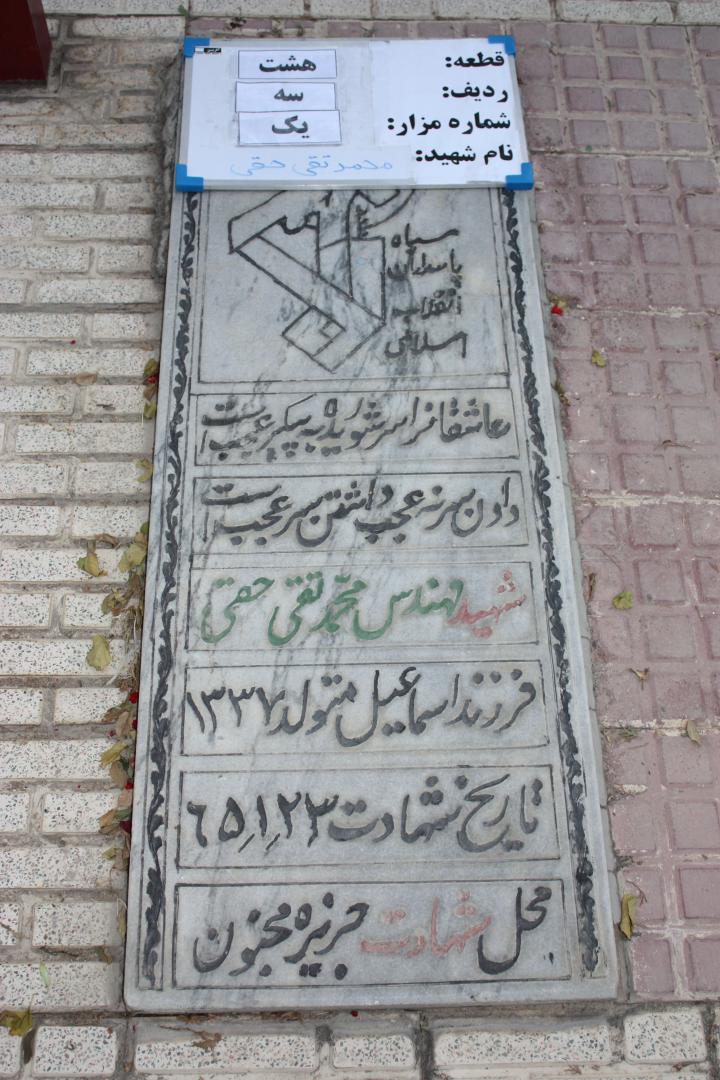 قطعه: هشت
ردیف: سه
شماره مزار: یک
نام شهید: محمد تقی حقی
سپاه
پاسداران
انقلاب
اسلامی
عاشقانرا سر شوریده به پیکر عجب است
دادن سر نه عجب داشتن سر عجب است
شهید مهندس محمد تقی حقی
فرزند اسماعیل متولد ۱۳۳۷
تاریخ شهادت ۲۳٫۱٫۶۵
محل شهادت جزیره مجنون